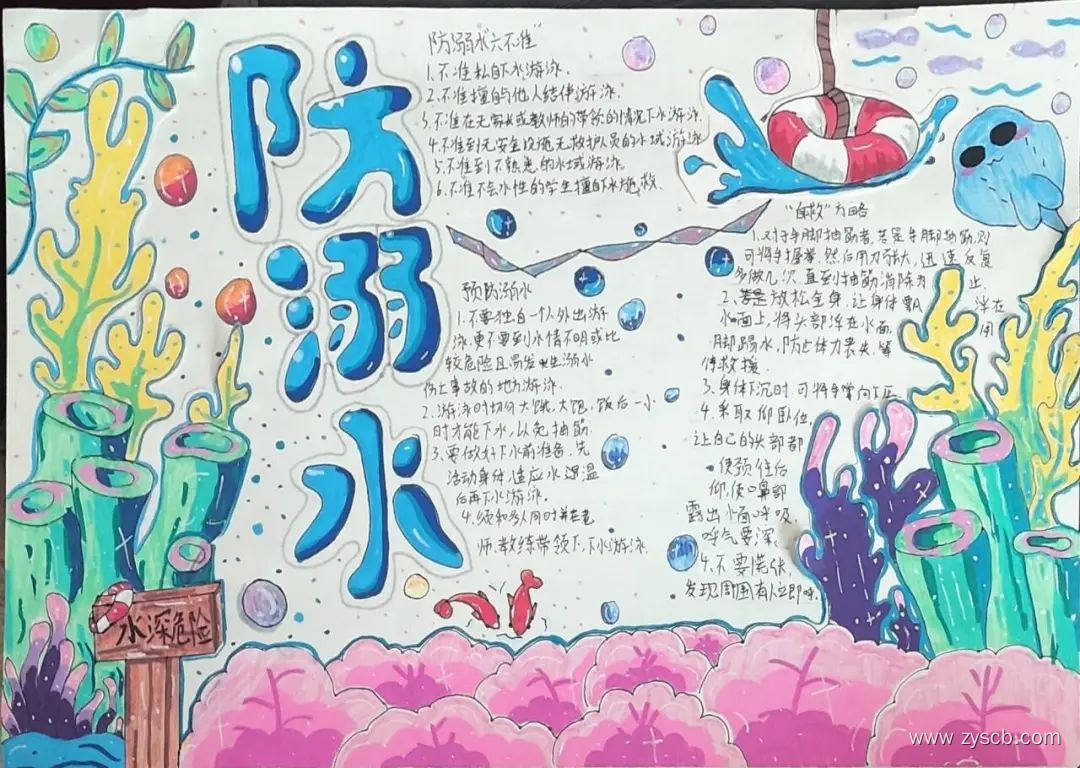 防溺水
防溺水"六不准"
1.不准私自下水游泳.
2.不准擅自与他人结伴游泳.
3.不准在无家长或教师的带领的情况下水游泳.
4.不准到无安全设施无救护员的水域游泳
5.不准到不熟悉的水域游泳.
6.不准不会水性的学生擅自下水施救.
预防溺水
1.不要独自一个人外出游
泳.更不要到水情不明或比
较危险且易发生溺水
伤亡事故的地方游泳.
2.游泳时切勿太饿.太饱.饭后一小
时才能下水,以免抽筋.
3.要做好下水前准备,先
活动身体,适应水温
后再下水游泳。
4.须和多人同时并在老
师.教练带领下,下水游泳.
"自救"方略
1.对于手脚抽筋者,若是手脚抽筋,则
可将手握拳,然后用力张大,迅速反复
多做几次,直到抽筋消除为止.
2.放松全身,让身体浮在
水面上,将头部浮在水面,用
脚踢水,防止体力丧失,等
待救援.
3.身体下沉时,可将手掌向下压
4.采取仰卧位,
让自己的头部都
使颈住后
仰,使口鼻部
露出水面呼吸
呼气要深.
4.不要慌张
发现周围有人立即呼.
水深危险
www.zyscb.com